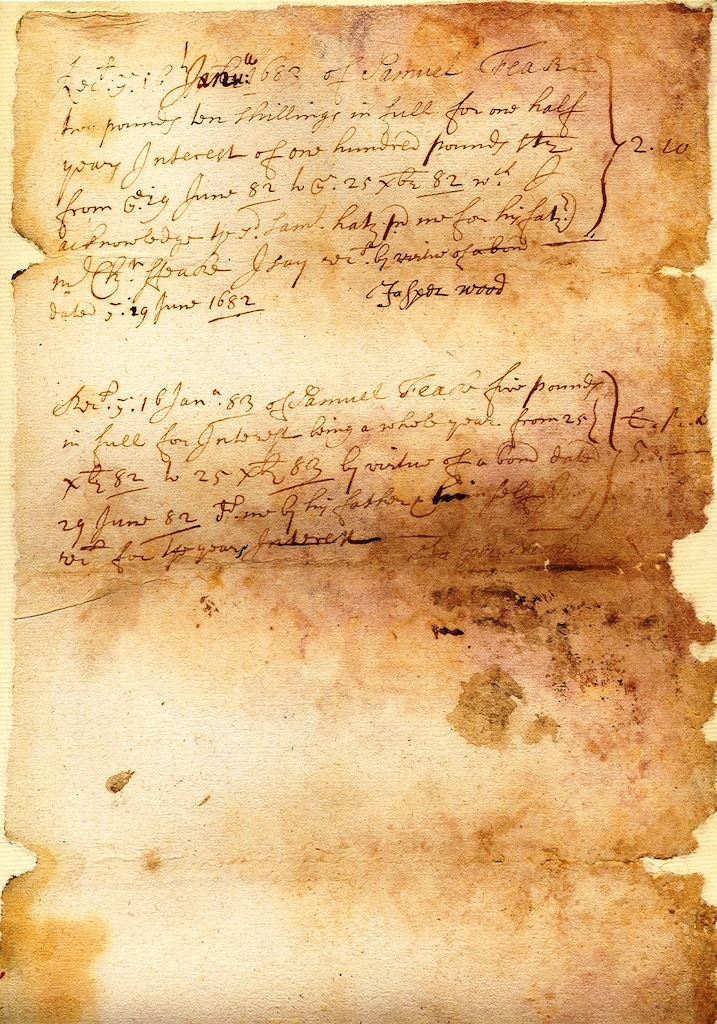 Rec.d ye. 16 Janua 1682 of Samuel Feake
two pounds ten shillings in full for one half
years Interest of one hundred pounds 2. 10
from ye. 29 June 82 to ye. 25 xber 82 wch I
acknowledge ye sd. Saml. hath pd me for his fathr
mr Feake I say recd. by vertue of a bond
dated ye. 29 June 1682 Jasper Wood
Recd. ye. 16 Jana. 83 of Samuel Feake five pounds
in full for Interest being a whole year from 25 £. s. d
xber 82 to 25 xber 83 by virtue of a bond dated 5.
29 June 82 me by his father & himself I say
recd for ye years Interest